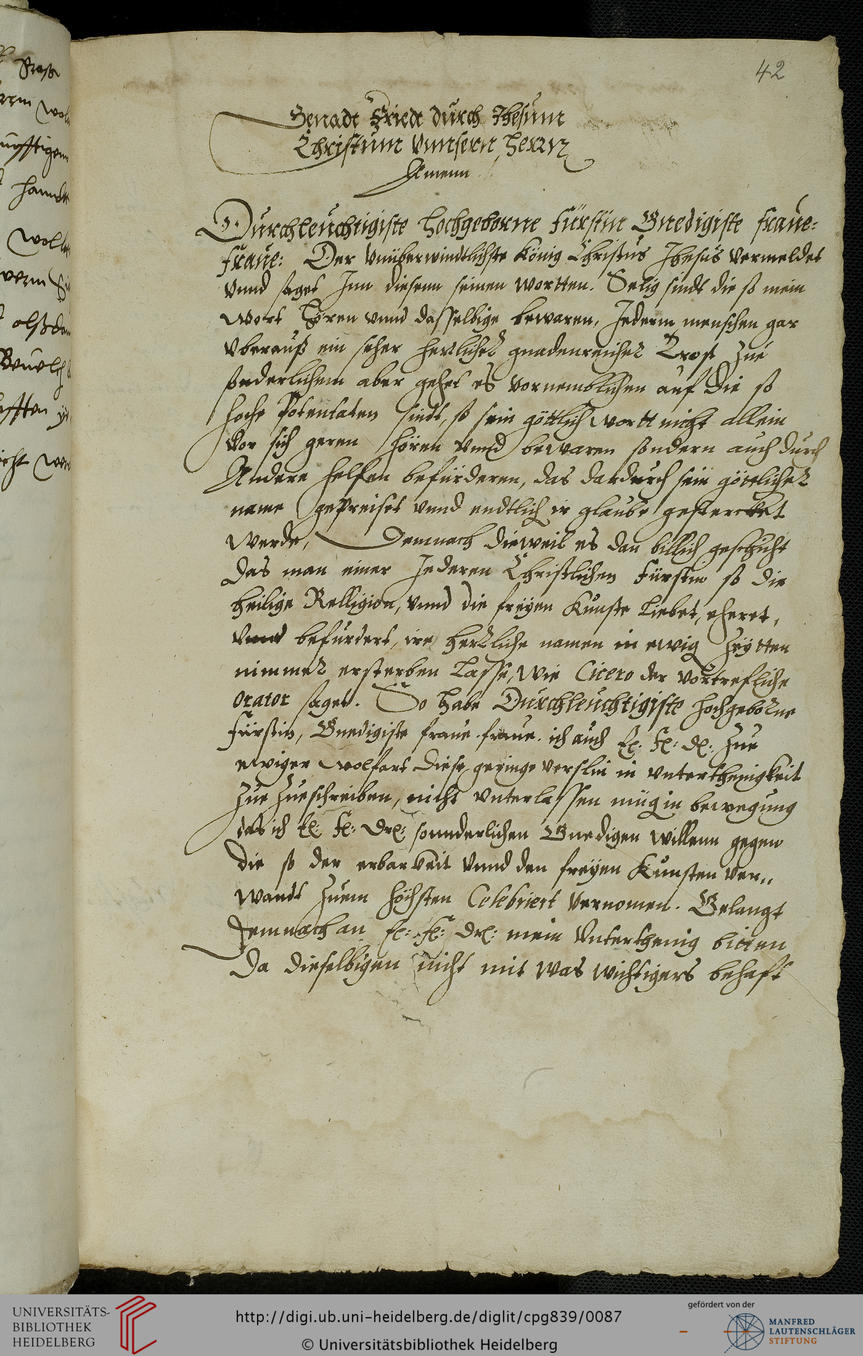 42
Genadt Friedt durch Jhesum
Christum Vnnsern herrn
Amenn
Durchleuchtigiste hochgeborne Fürstin Gnedigiste fraue:
fraue: Der vnüberwindtlichste König Christus Jhesus vermeldet
vnnd saget Inn diesenn seinen wortten. Selig sindt die so mein
wort hören vnnd dasselbige bewaren, Jederm menschen gar
vberauß ein seher herlicher gnadenreicher Trost zue
sonderlichem aber gehet es vornemblichen auf die so
hoche Potentaten sindt, so sein göttlich wortt nicht allein
vor sich geren hören vnnd bewaren sondern auch durch
Andere helfen befürderen, das dardurch sein göttlicher
name gepreiset vnnd endtlich ir glaube gesterckhet
werde, Demnach dieweil es dan billich geschicht
das man einer Jederen Christlichen Fürstin so die
heilige Relligion, vnnd die freyen Künste liebet, eheret,
vnnd befürdert, ire herrliche namen in ewig Zeytten
nimmer ersterben lasse, wie Cicero der vortrefliche
orator saget. So habe Durchleuchtigiste hochgeborne
Fürstin, Gnedigiste fraue fraue. ich auch E: F: D: zue
ewiger wolfart diese geringe verslin in unterthenigkeit
zue zueschreiben, nicht unterlassen mügin bewegung
das ich E: F: Dr: sonnderlichen Gnedigen willenn gegen
die so der erbarkeit vnnd den freyen Künsten ver,,
wandt zuem höchsten Celebriert vernomen. Gelangt
demnach an E: F: Dr: mein Vnterthenig bitten
da dieselbigen nicht mit was wichtigers behaft
UNIVERSITÄTS-
BIBLIOTHEK
HEIDELBERG
http://digi.ub.uni-heidelberg.de/diglit/cpg839/0087
© Universitätsbibliothek Heidelberg
gefördert von der
MANFRED
LAUTENSCHLÄGER
STIFTUNG